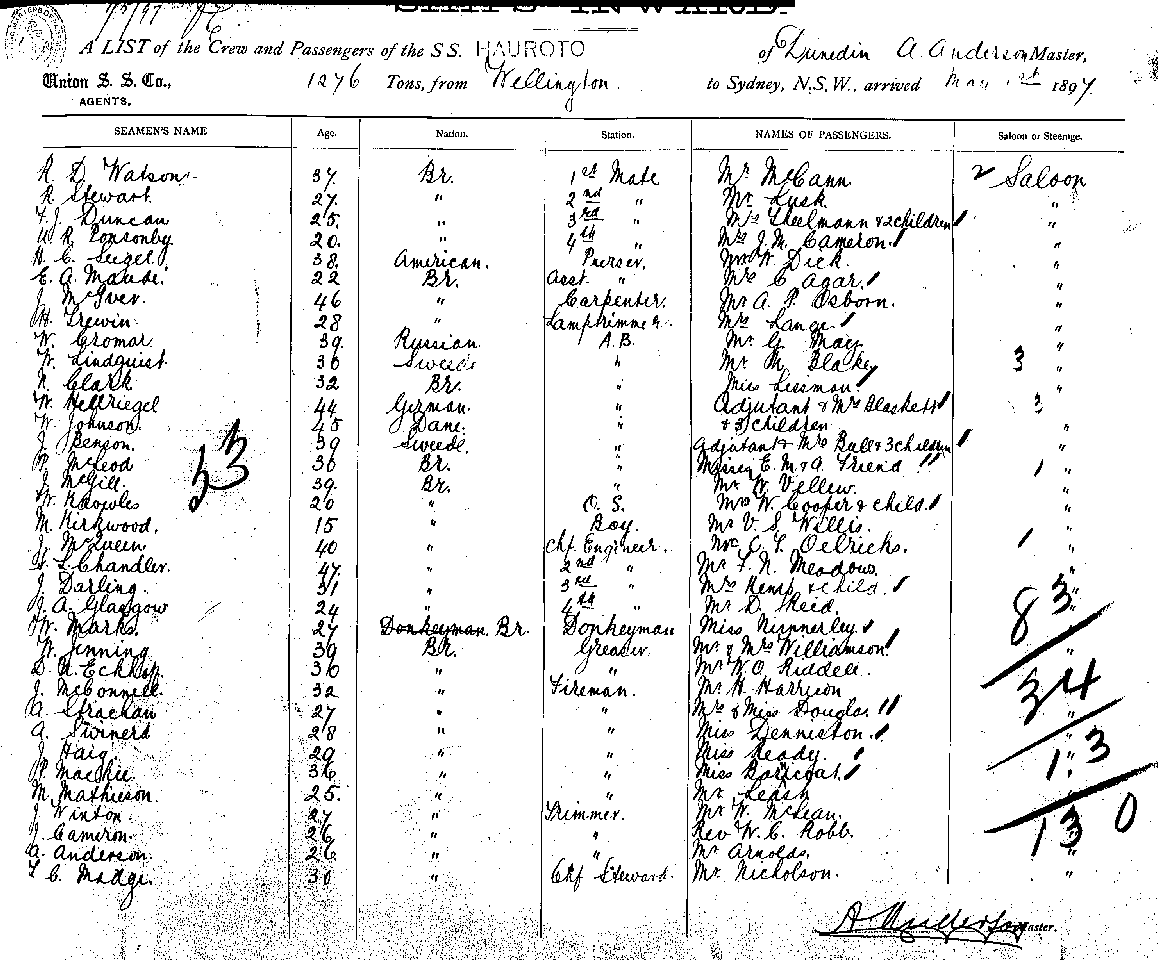 SHIPS INWARD.
A LIST of the Crew and Passengers of the S.S. HAUROTO of Dunedin A. Anderson Master,
Union S. S. Co., AGENTS. 1276 Tons, from Wellington. to Sydney, N.S.W., arrived May 1st 1897.
SEAMEN'S NAME Age. Nation. Station. NAMES OF PASSENGERS. Saloon or Steerage.
R. D. Watson 37 Br. 1st Mate Mr McCann 2 Saloon
R. Stewart 27 " 2nd " Mr Lusk "
F. J. Duncan 25 " 3rd " Mrs Theelmann & 2 children "
R. Ponsonby 20 " 4th " Mrs J. M. Cameron "
H. C. Seigel 38 American. Purser. W. Dick "
E. A. Maude 22 Br. Asst " Mrs C. Agar "
J. McIver. 46 " Carpenter. Mr A. P. Osborn. "
H. Trewin 28 " Lamptrimmer. Mrs Lange "
W. Cromar. 39 Russian A.B. Mr G. May "
W. Lindquist 36 Swede " Mr M. Blakey 3 "
N. Clark 32 Br. " Miss Lissman "
W. Hellriegel 44 German. " Adjutant & Mrs Blaskett 3 "
W. Johnson. 45 Dane. " & 3 children
J. Benson. 39 Swede. " Adjutant & Mrs Ball & 3 children "
McLeod 36 Br. " E. M. & A. Friend 1 "
J. McGill. 39 Br. " Mr W. Vellew. "
W. Knowles 20 " O. S. Mrs W. Cooper & child. "
M. Kirkwood. 15 " Boy. Mr V. S. Willis. "
J. McQueen 40 " Chf Engineer. C. L. Oelrichs. 1 "
L. Chandler. 47 " 2nd " Mr F. N. Meadows "
J. Darling. 31 " 3rd " Mrs Kemp & child. "
J. A. Glasgow 24 " 4th " Mr D. Skeed. "
W. Marks. 27 Donkeyman. Br. Donkeyman Miss Nunnerley
W. Jenning 39 Br. Greaser. Mr & Mrs Williamson "
D. R. 36 " " Mr W. O. Riddell.
J. McConnell. 32 " Fireman. Mr H. Harrison
A. Strachan 27 " " Mrs & Miss Douglas "
A. Swinerd 28 " " Miss Denniston.
J. Haig. 29 " " Miss Ready. "
Mackie 36 " " Miss
M. Mathieson. 25. " " Mr Leash
J. Winton. 27 " Trimmer. Mr W. McLean.
J. Cameron. 26 " " Rev W. C. Robb.
A. Anderson. 26 " " Mr Arnolds. "
F. C. Madge. 30 " Chf Steward. Mr Nicholson. "
53
83
34
13
130
A Anderson Master.